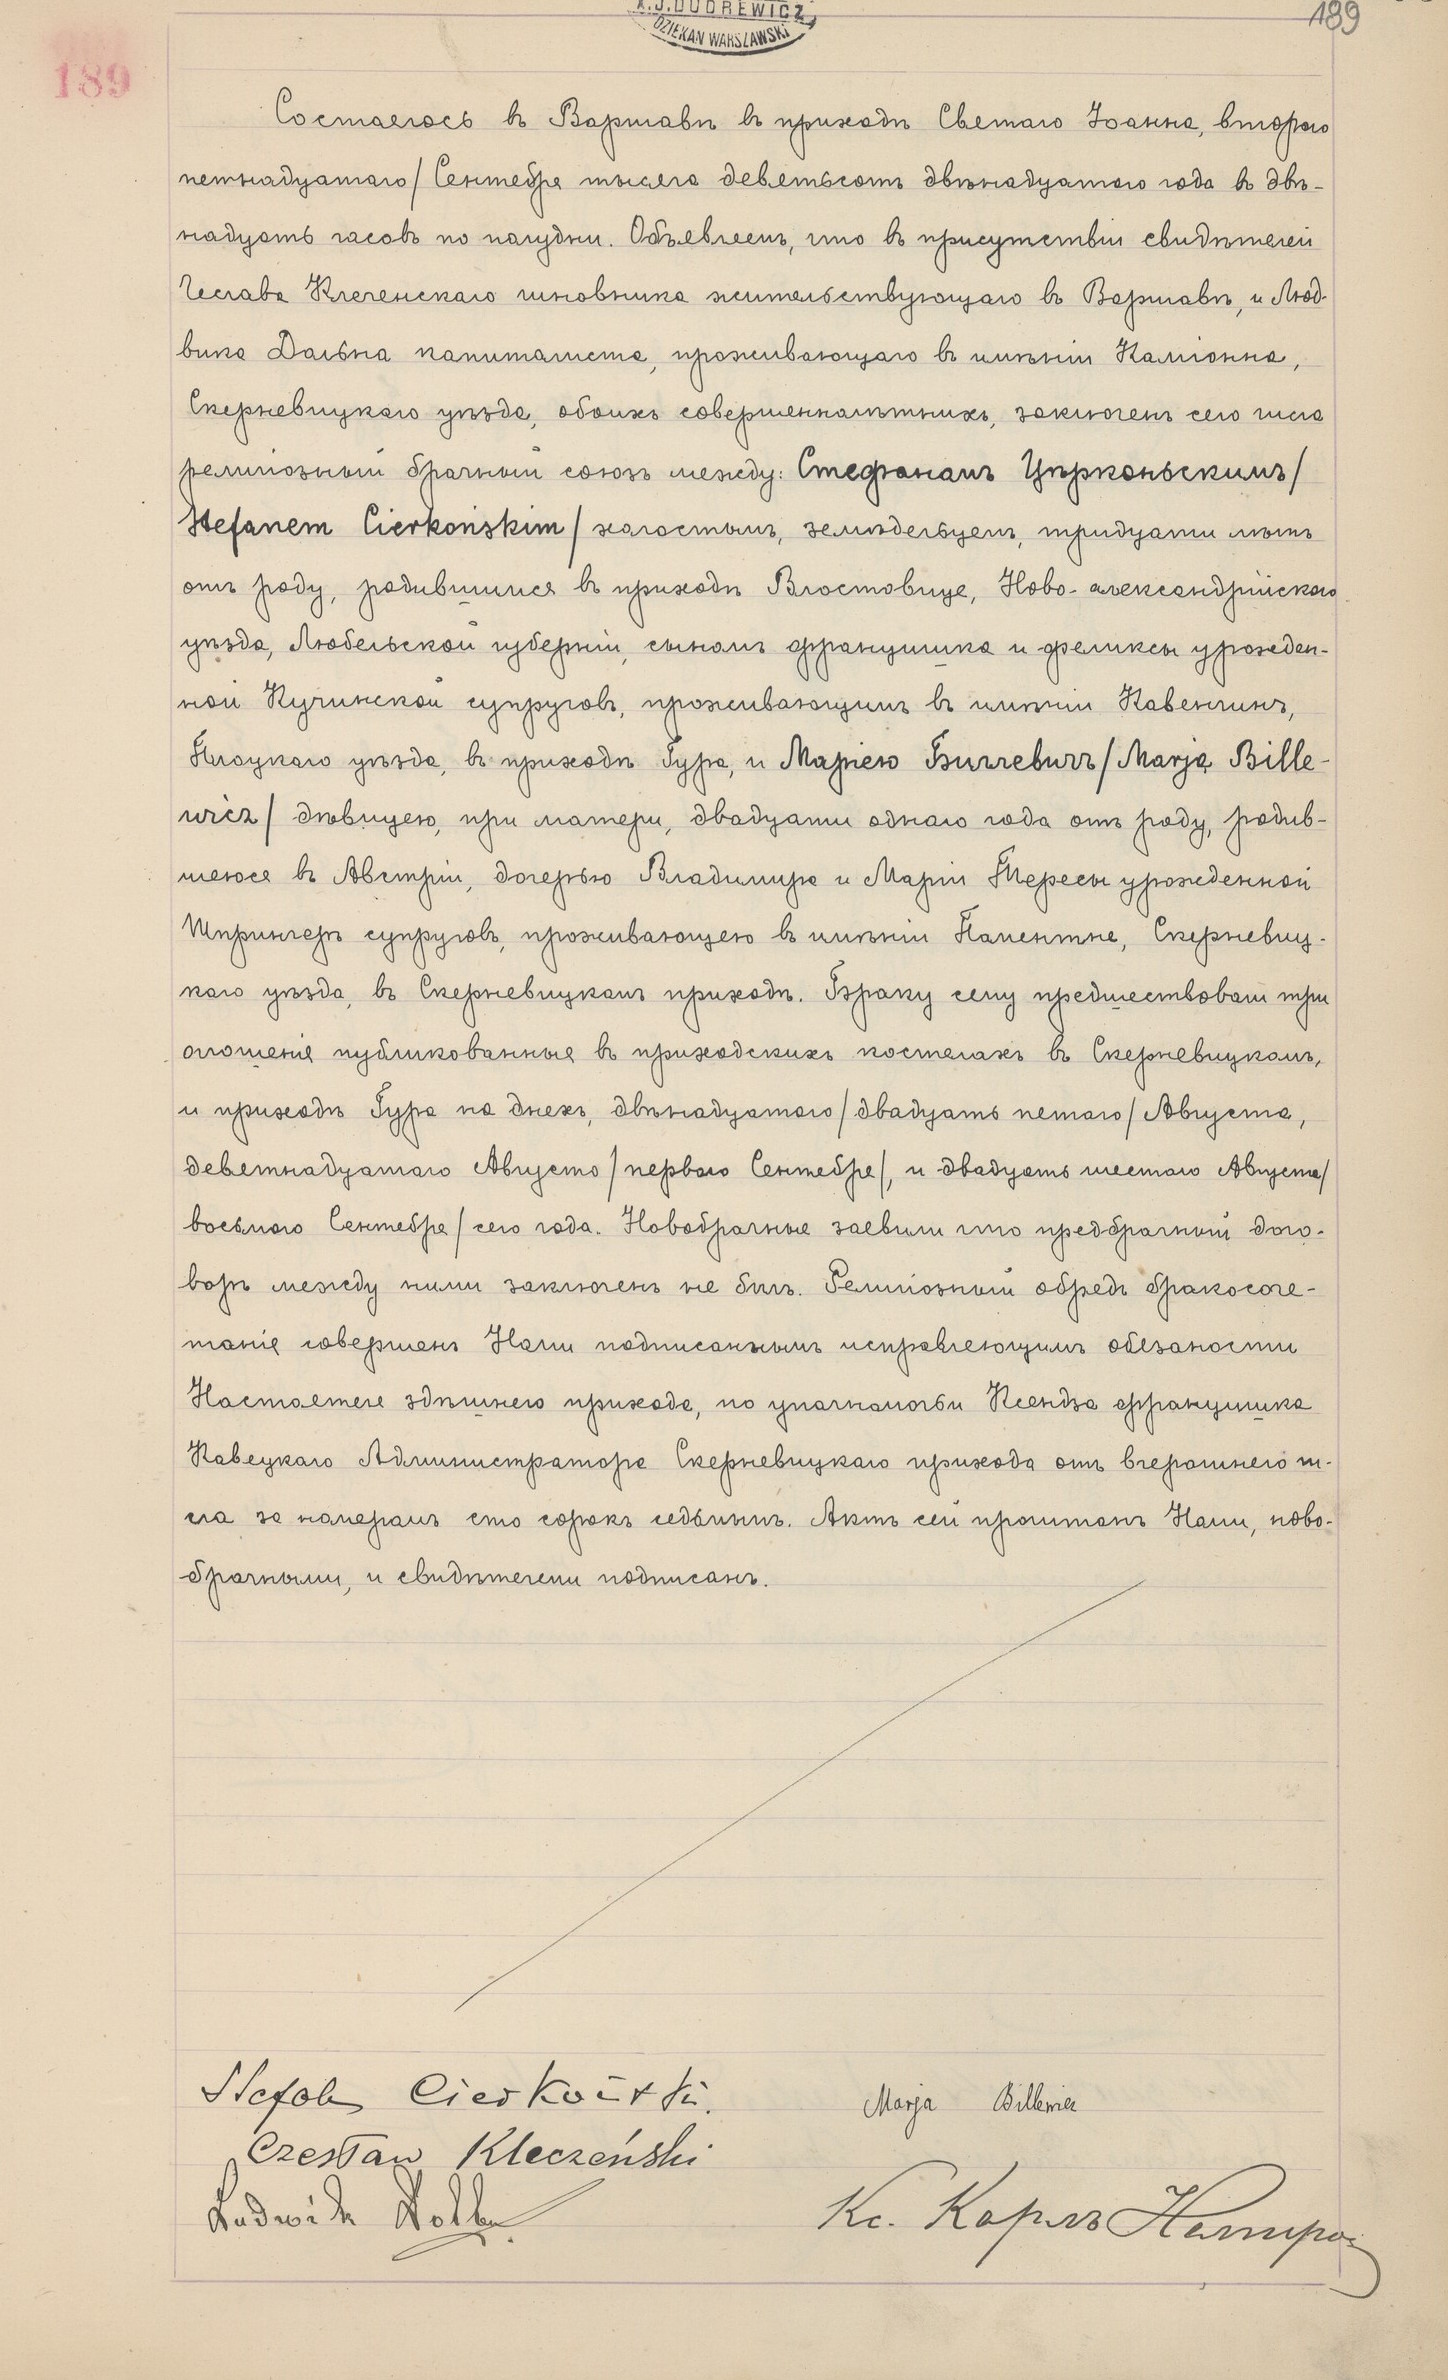 K.J.DUDREWICZ,
DZIEKAN WARSZAWSKI
189
189
Состаелось въ Варшавѣ въ приходѣ Светаго Іоанна, второго
петнадцатаго/ Сентебре тысеча деветьсотъ двѣнадцатаго года въ двѣ-
надцать часовъ по полудни. Объевлеемъ, что въ присутствіи свидѣтелей
Чеслава Клеченскаго чиновника жительствующаго въ Варшавѣ, и Люд-
вика Дальна капиталиста, проживающаго въ имѣніи Каміонна,
Скерневицкаго уѣзда, обоихъ совершеннолѣтнихъ, заключенъ сего числа
религіозный брачный союзъ между: Стефаномъ Цѣрконьскимъ/
Stefanem Cierkońskim/ холостымъ, земледельцемъ, тридцати лѣтъ
отъ роду, родившимся въ приходѣ Влостовице, Ново-александрійскаго
уѣзда, Любельской губерніи, сыномъ Францишка и Феликсы урожден-
ной Кучинской супруговъ, проживающимъ въ имѣніи Кавенчинъ,
Плоцкаго уѣзда, въ приходѣ Гура, и Маріею Биллевичъ/ Marją Bille-
wicz/ дѣвицею, при матери, двадцати одного года отъ роду, родив-
шеюсе въ Австріи, дочерью Владимира и Маріи Тересы урожденной
Шпрингеръ супруговъ, проживающею въ имѣніи Паментне, Скерневиц-
каго уѣзда, въ Скерневицкомъ приходѣ. Браку сему предшествовали три
оглошеніе публикованные въ приходскихъ костелахъ въ Скерневицкомъ,
и приходѣ Гура по днехъ, двѣнадцатаго/двадцать петаго/ Августа,
деветнадцатаго Августа/первого Сентебре/, и двадцать шестого Августа/
восьмого Сентебре/ сего года. Новобрачные заевили что предбрачный дого-
воръ между ними заключенъ не былъ. Религіозный обредъ бракосоче-
таніе совершенъ Нами подписаннымъ исправлеющимъ обезаности
Настоетеле здѣшнего прихода, по уполномочьи Ксендза Францишка
Кавецкаго Администраторе Скерневицкаго прихода отъ вчерашнего чи-
сла за номеромъ сто сорокъ седьмымъ. Актъ сей прочитанъ Нами, ново-
брачными, и свидѣтелеми подписанъ.
Stefan Cierkoński.
Marja Billewicz
Czesław Kleczeński
Ludwik
Кс. Карлъ